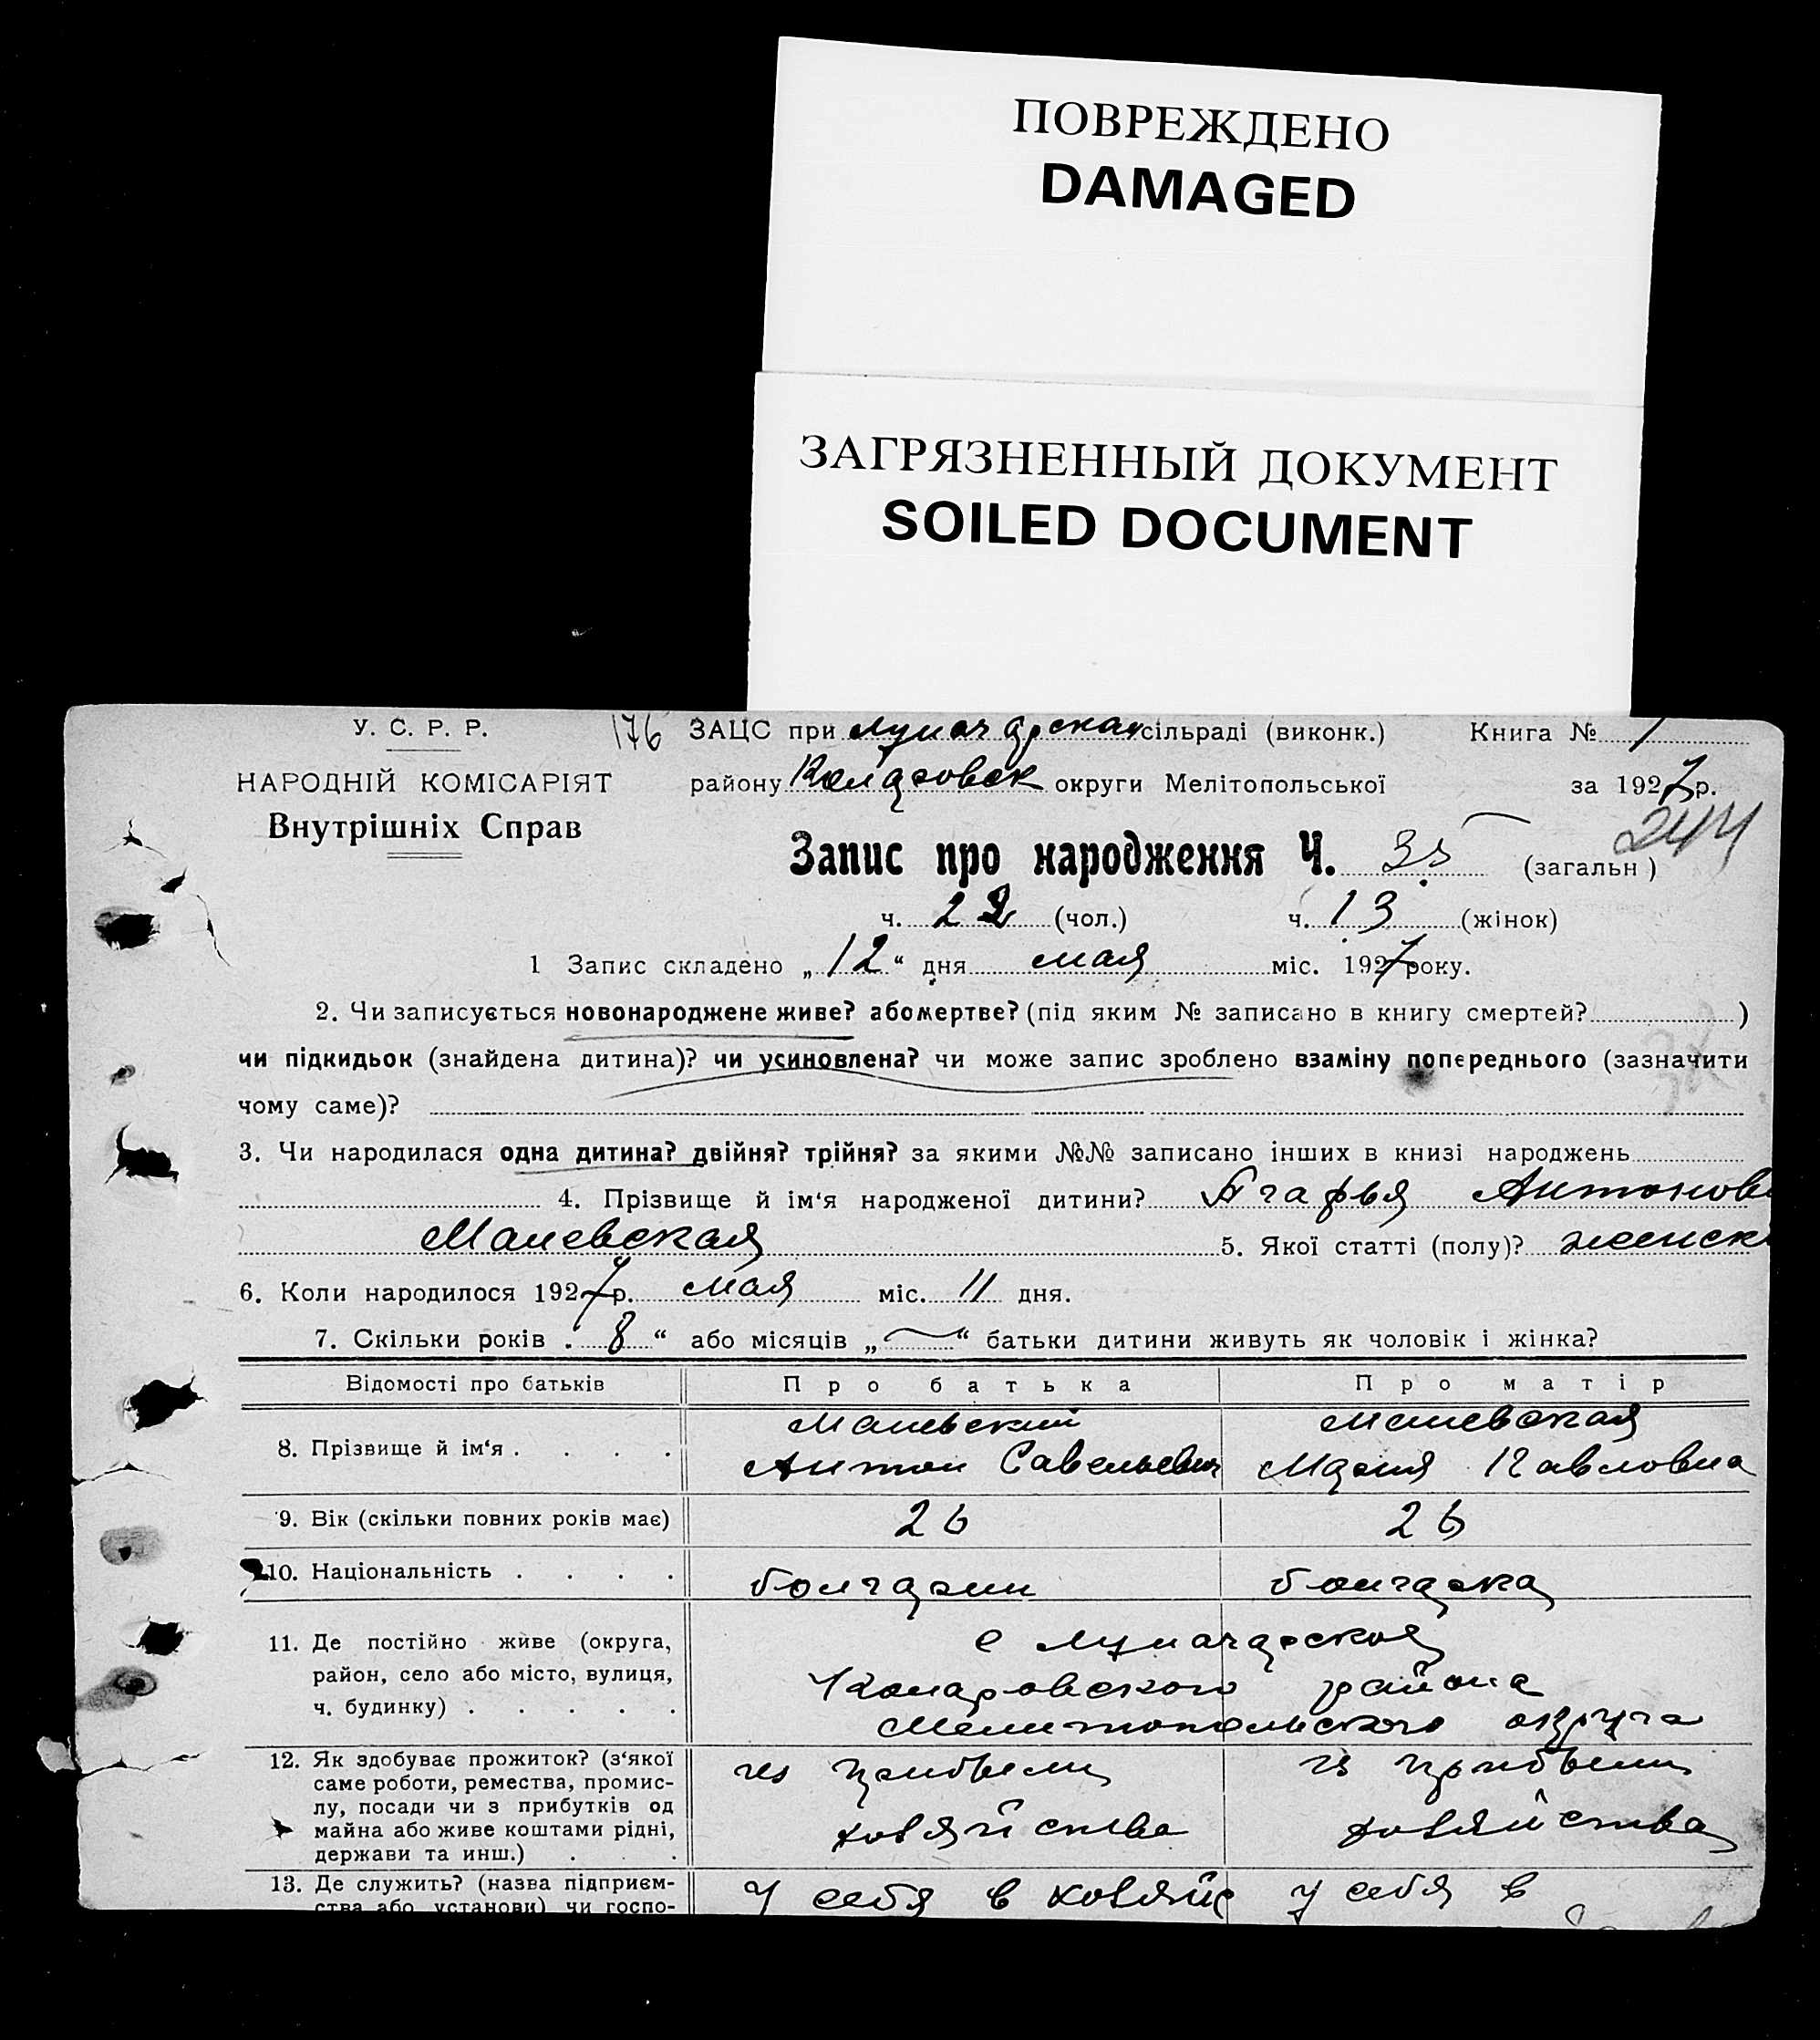 ПОВРЕЖДЕНО
DAMAGED
ЗАГРЯЗНЕННЫЙ ДОКУМЕНТ
SOILED DOCUMENT
У. С. Р. Р.
НАРОДНІЙ КОМІСАРІЯТ
Внутрішніх Справ
176 ЗАЦС при сільраді (виконк.) Книга № 1
району округи Мелітопольської за 1927 р.
244
Запис про народження Ч. 35 (загальн)
ч. 22 (чол.) ч. 13 (жінок)
1 Запис складено „12“ дня мая міс. 1927 року.
2. Чи записується новонароджене живе? або мертве? (під яким № записано в книгу смертей? )
чи підкидьок (знайдена дитина)? чи усиновлена? чи може запис зроблено взаміну попереднього (зазначити
чому саме)?
3. Чи народилася одна дитина? двійня? трійня? за якими №№ записано інших в книзі народжень
4. Прізвище й ім‘я народженої дитини? Агафья Антонов
Маневская 5. Якої статті (полу)? женск
6. Коли народилося 1927 р. мая міс. 11 дня.
7. Скільки років „8“ або місяців „—“ батьки дитини живуть як чоловік і жінка?
Відомості про батьків Про батька Про матір
8. Прізвище й ім‘я Маневский Антон Савельевич Маневская Мария Павловна
9. Вік (скільки повних років має) 26 26
10. Національність болгарин болгарка
11. Де постійно живе (округа,
район, село або місто, вулиця,
ч. будинку)
с Луначарской
района
Мелитопольского округа
12. Як здобуває прожиток? (з‘якої
саме роботи, ремества, промис-
лу, посади чи з прибутків од
майна або живе коштами рідні,
держави та инш.)
из прибыли из прибыли
хозяйства хозяйства
13. Де служить? (назва підприєм-
ства або установи) чи госпо-
у себя в хозяйс у себя в